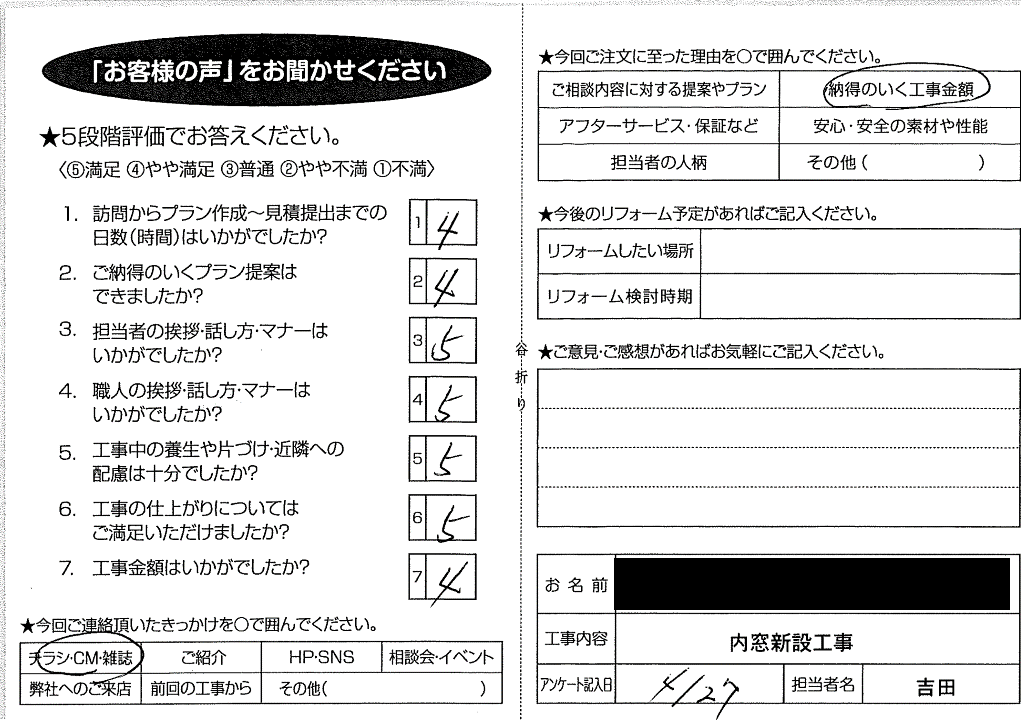 「お客様の声」をお聞かせください
★5段階評価でお答えください。
〈⑤満足 ④やや満足 ③普通 ②やや不満 ①不満〉
1. 訪問からプラン作成～見積提出までの
日数(時間)はいかがでしたか?
1 4
2. ご納得のいくプラン提案は
できましたか?
2 4
3. 担当者の挨拶・話し方・マナーは
いかがでしたか?
3 5
4. 職人の挨拶・話し方・マナーは
いかがでしたか?
4 5
5. 工事中の養生や片づけ・近隣への
配慮は十分でしたか?
5 5
6. 工事の仕上がりについては
ご満足いただけましたか?
6 5
7. 工事金額はいかがでしたか?
7 4
★今回ご連絡頂いたきっかけを〇で囲んでください。
チラシ・CM・雑誌 ご紹介 HP・SNS 相談会・イベント
弊社へのご来店 前回の工事から その他( )
谷折り
★今回ご注文に至った理由を〇で囲んでください。
ご相談内容に対する提案やプラン 納得のいく工事金額
アフターサービス・保証など 安心・安全の素材や性能
担当者の人柄 その他( )
★今後のリフォーム予定があればご記入ください。
リフォームしたい場所
リフォーム検討時期
★ご意見・ご感想があればお気軽にご記入ください。
お名前
工事内容 内窓新設工事
アンケート記入日 4/27 担当者名 吉田